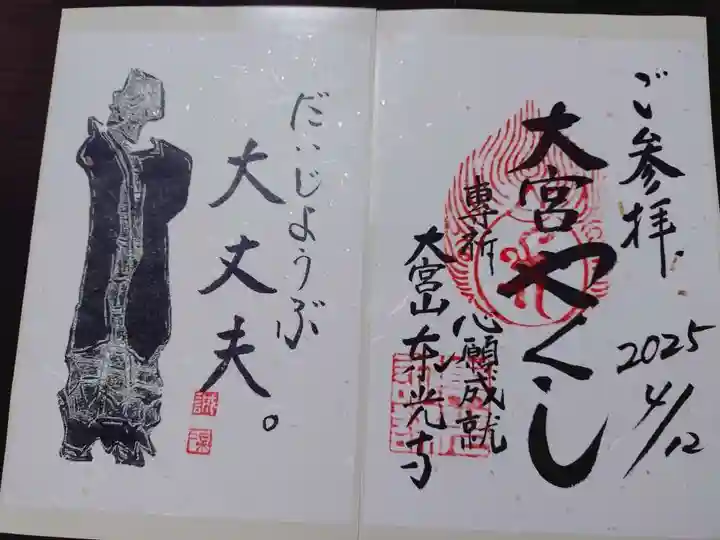 ご参拝
2025
4/12
大宮やくし
專祈 心願成就
大宮山东光寺
だいじようぶ
大丈夫。
誠